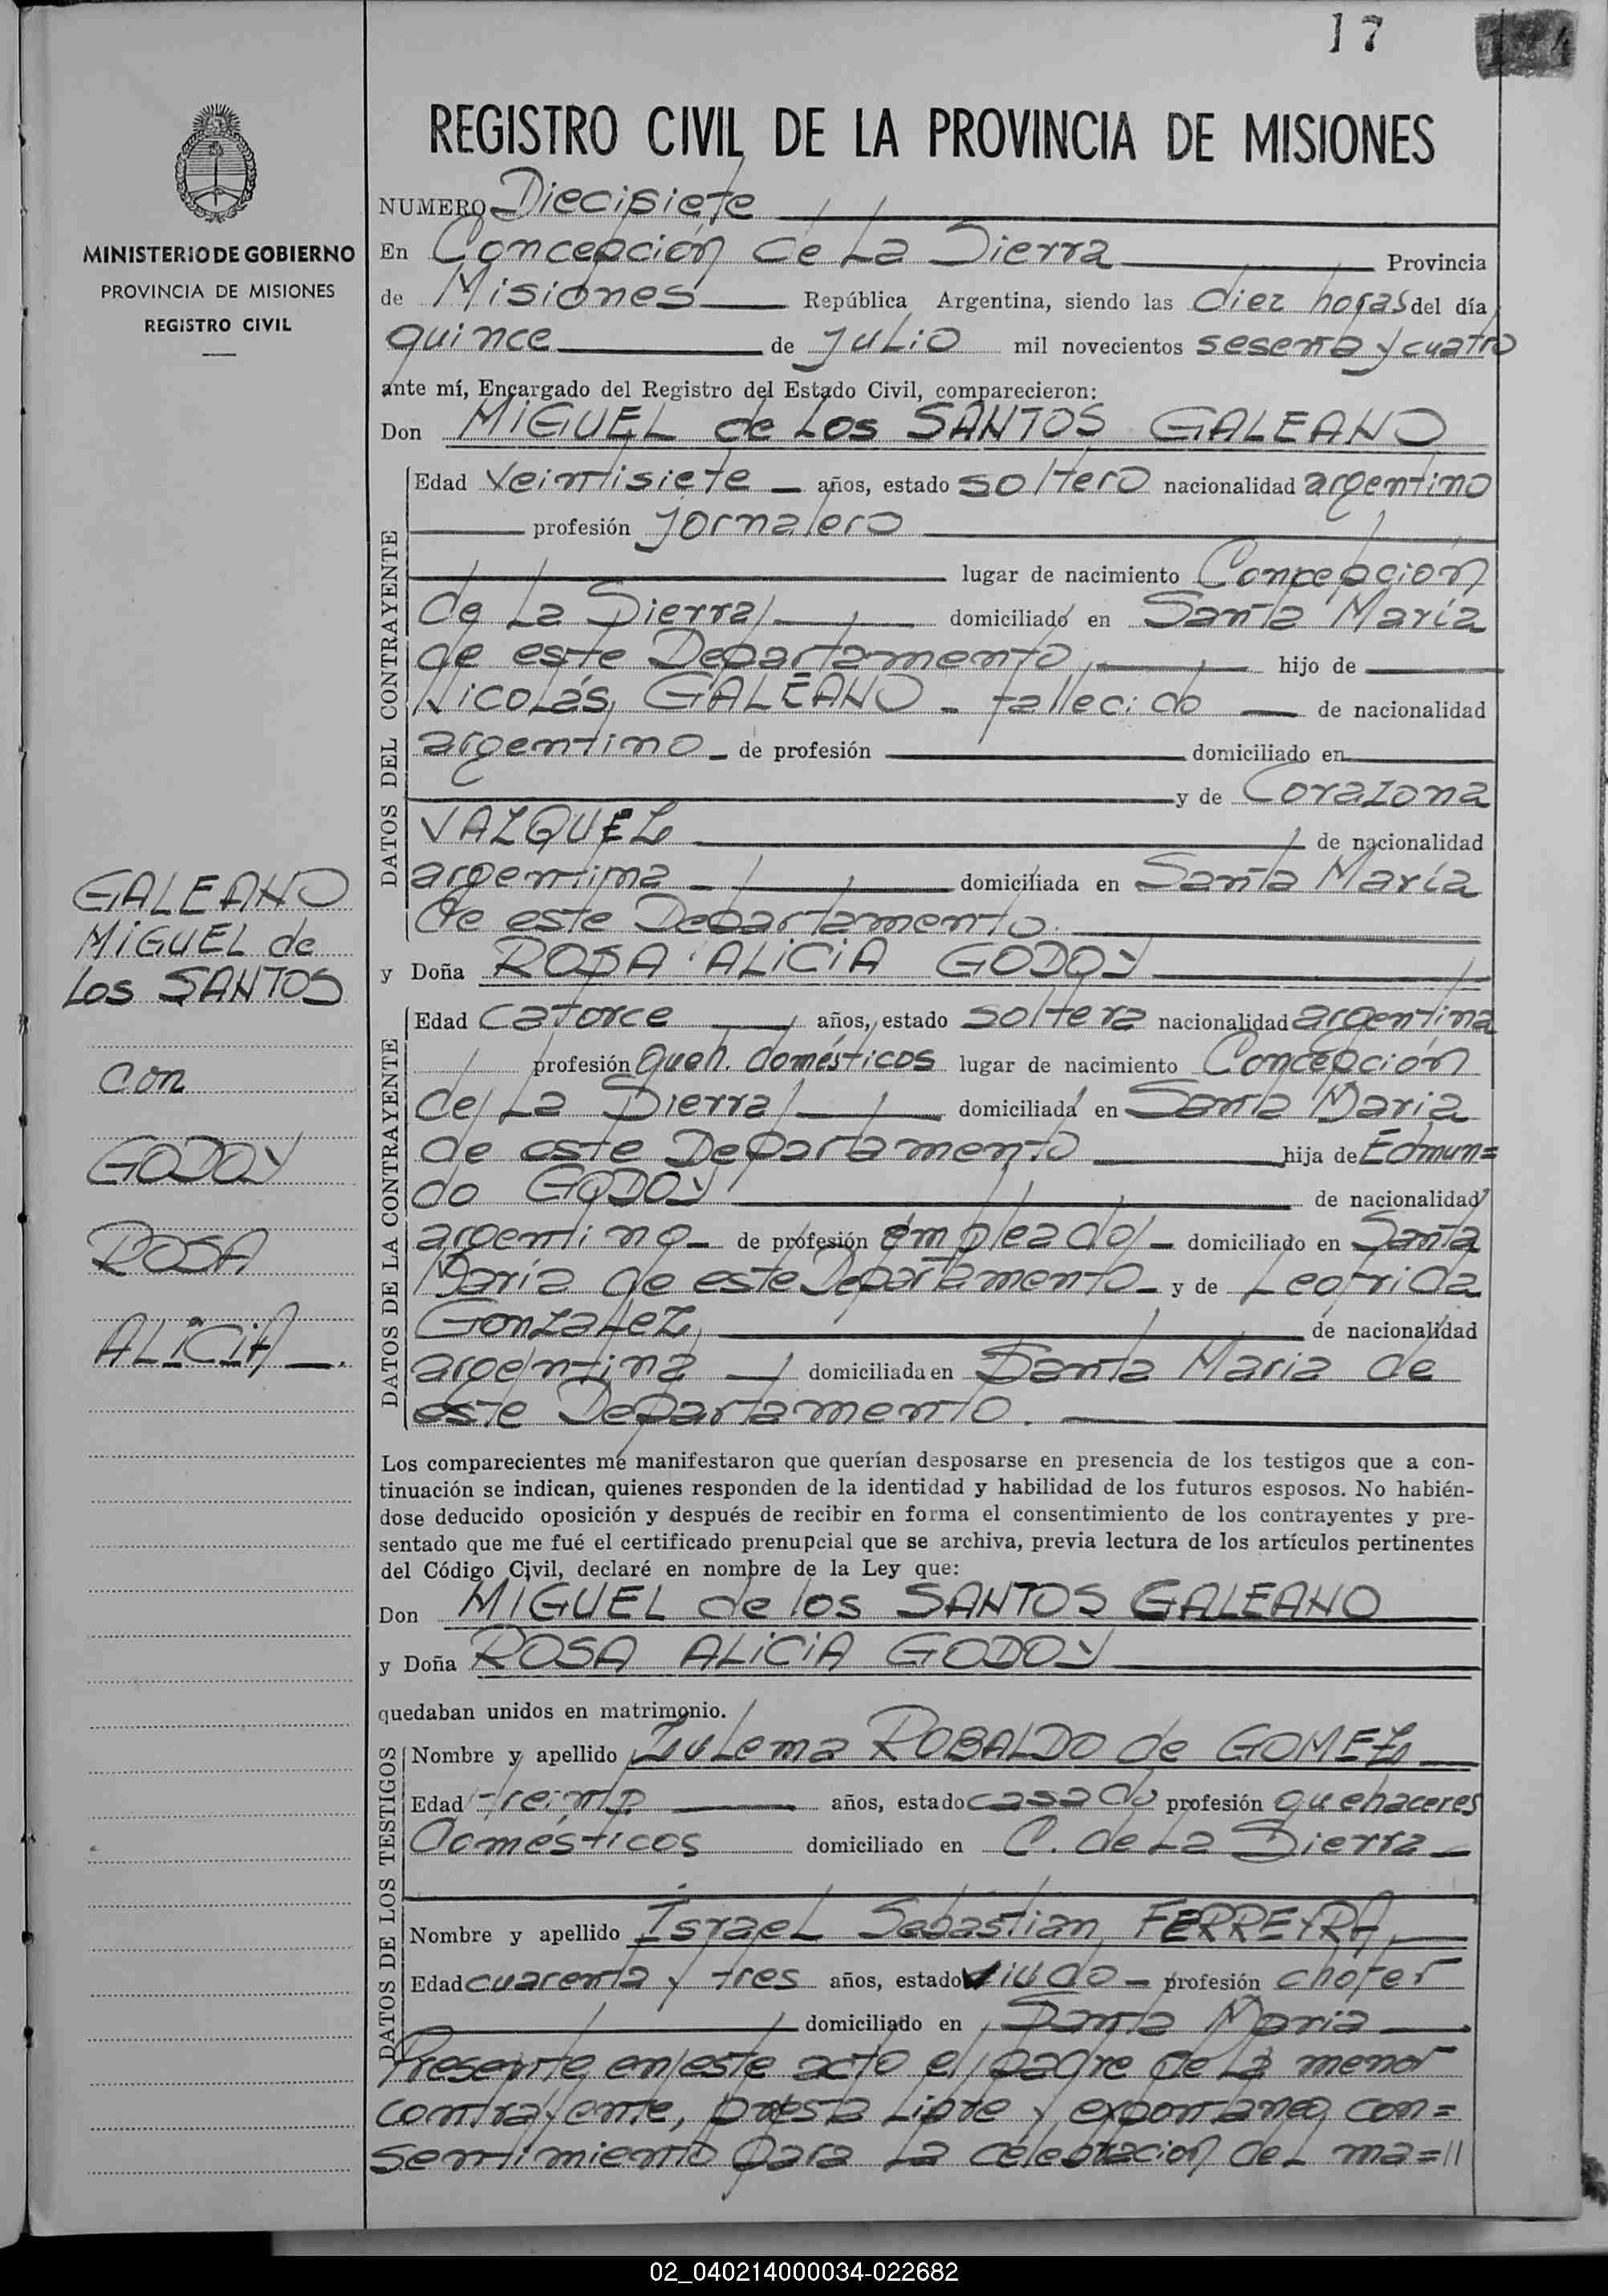 17
REGISTRO CIVIL DE LA PROVINCIA DE MISIONES
MINISTERIO DE GOBIERNO
PROVINCIA DE MISIONES
REGISTRO CIVIL
NUMERO Diecisiete
En Concepción de La Sierra Provincia
de Misiones República Argentina, siendo las diez horas del día
quince de julio mil novecientos sesenta y cuatro
ante mí, Encargado del Registro del Estado Civil, comparecieron:
Don MIGUEL de Los SANTOS GALEANO
DATOS DEL CONTRAYENTE
Edad veintisiete - años, estado soltero nacionalidad argentino
profesión jornalero
lugar de nacimiento Concepción
de La Sierra domiciliado en Santa María
de este Departamento hijo de
Nicolás GALEANO - fallecido de nacionalidad
argentino - de profesión domiciliado en
y de Corazona
VAZQUEZ de nacionalidad
argentina - domiciliada en Santa María
de este Departamento.
y Doña ROSA ALICIA GODOY
DATOS DE LA CONTRAYENTE
Edad catorce años, estado soltera nacionalidad argentina
profesión queh. domésticos lugar de nacimiento Concepción
de La Sierra domiciliada en Santa Maria
de este Departamento hija de Edmun=
do GODOY de nacionalidad
argentino - de profesión empleado - domiciliado en Santa
María de este Departamento - y de Leofrida
Gonzalez de nacionalidad
argentina domiciliada en Santa Maria de
este Departamento.
GALEANO
MIGUEL de
Los SANTOS
con
GODOY
ROSA
ALICIA .
Los comparecientes me manifestaron que querían desposarse en presencia de los testigos que a con-
tinuación se indican, quienes responden de la identidad y habilidad de los futuros esposos. No habién-
dose deducido oposición y después de recibir en forma el consentimiento de los contrayentes y pre-
sentado que me fué el certificado prenupcial que se archiva, previa lectura de los artículos pertinentes
del Código Civil, declaré en nombre de la Ley que:
Don MIGUEL de los SANTOS GALEANO
y Doña ROSA ALICIA GODOY
quedaban unidos en matrimonio.
DATOS DE LOS TESTIGOS
Nombre y apellido Zulema ROBALDO de GOMEZ
Edad treinta años, estado casado profesión quehaceres
Domésticos domiciliado en C. de La Sierra
Nombre y apellido Israel Sebastian FERREYRA
Edad cuarenta y tres años, estado viudo - profesión chofer
domiciliado en Santa Maria
Presente en este acto el padre de La menor
contrayente, presta Libre y expontaneo con=
sentimiento para La celebracion del ma=//
02_040214000034-022682